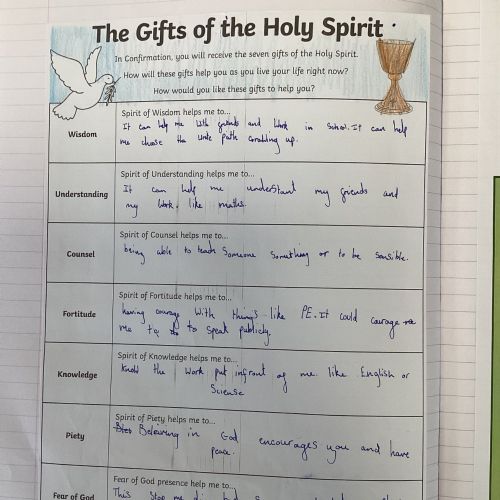 The Gifts of the Holy Spirit
In Confirmation, you will receive the seven gifts of the Holy Spirit.
How will these gifts help you as you live your life right now?
How would you like these gifts to help you?
Wisdom
Spirit of Wisdom helps me to...
It can help me with friends and work in school. It can help
me choose the path up.
Understanding
Spirit of Understanding helps me to...
It can help me understant my friends and
my work. like maths.
Counsel
Spirit of Counsel helps me to...
being able to teach someone something or to be sensible.
Fortitude
Spirit of Fortitude helps me to...
having courage with things like PE. It could courage
me to speak publicly.
Knowledge
Spirit of Knowledge helps me to...
Know the work put infront of me. like English or
Sciense
Piety
Spirit of Piety helps me to...
Believing in God encourages you and have
peace.
Fear of God
Fear of God presence help me to...
This stop me